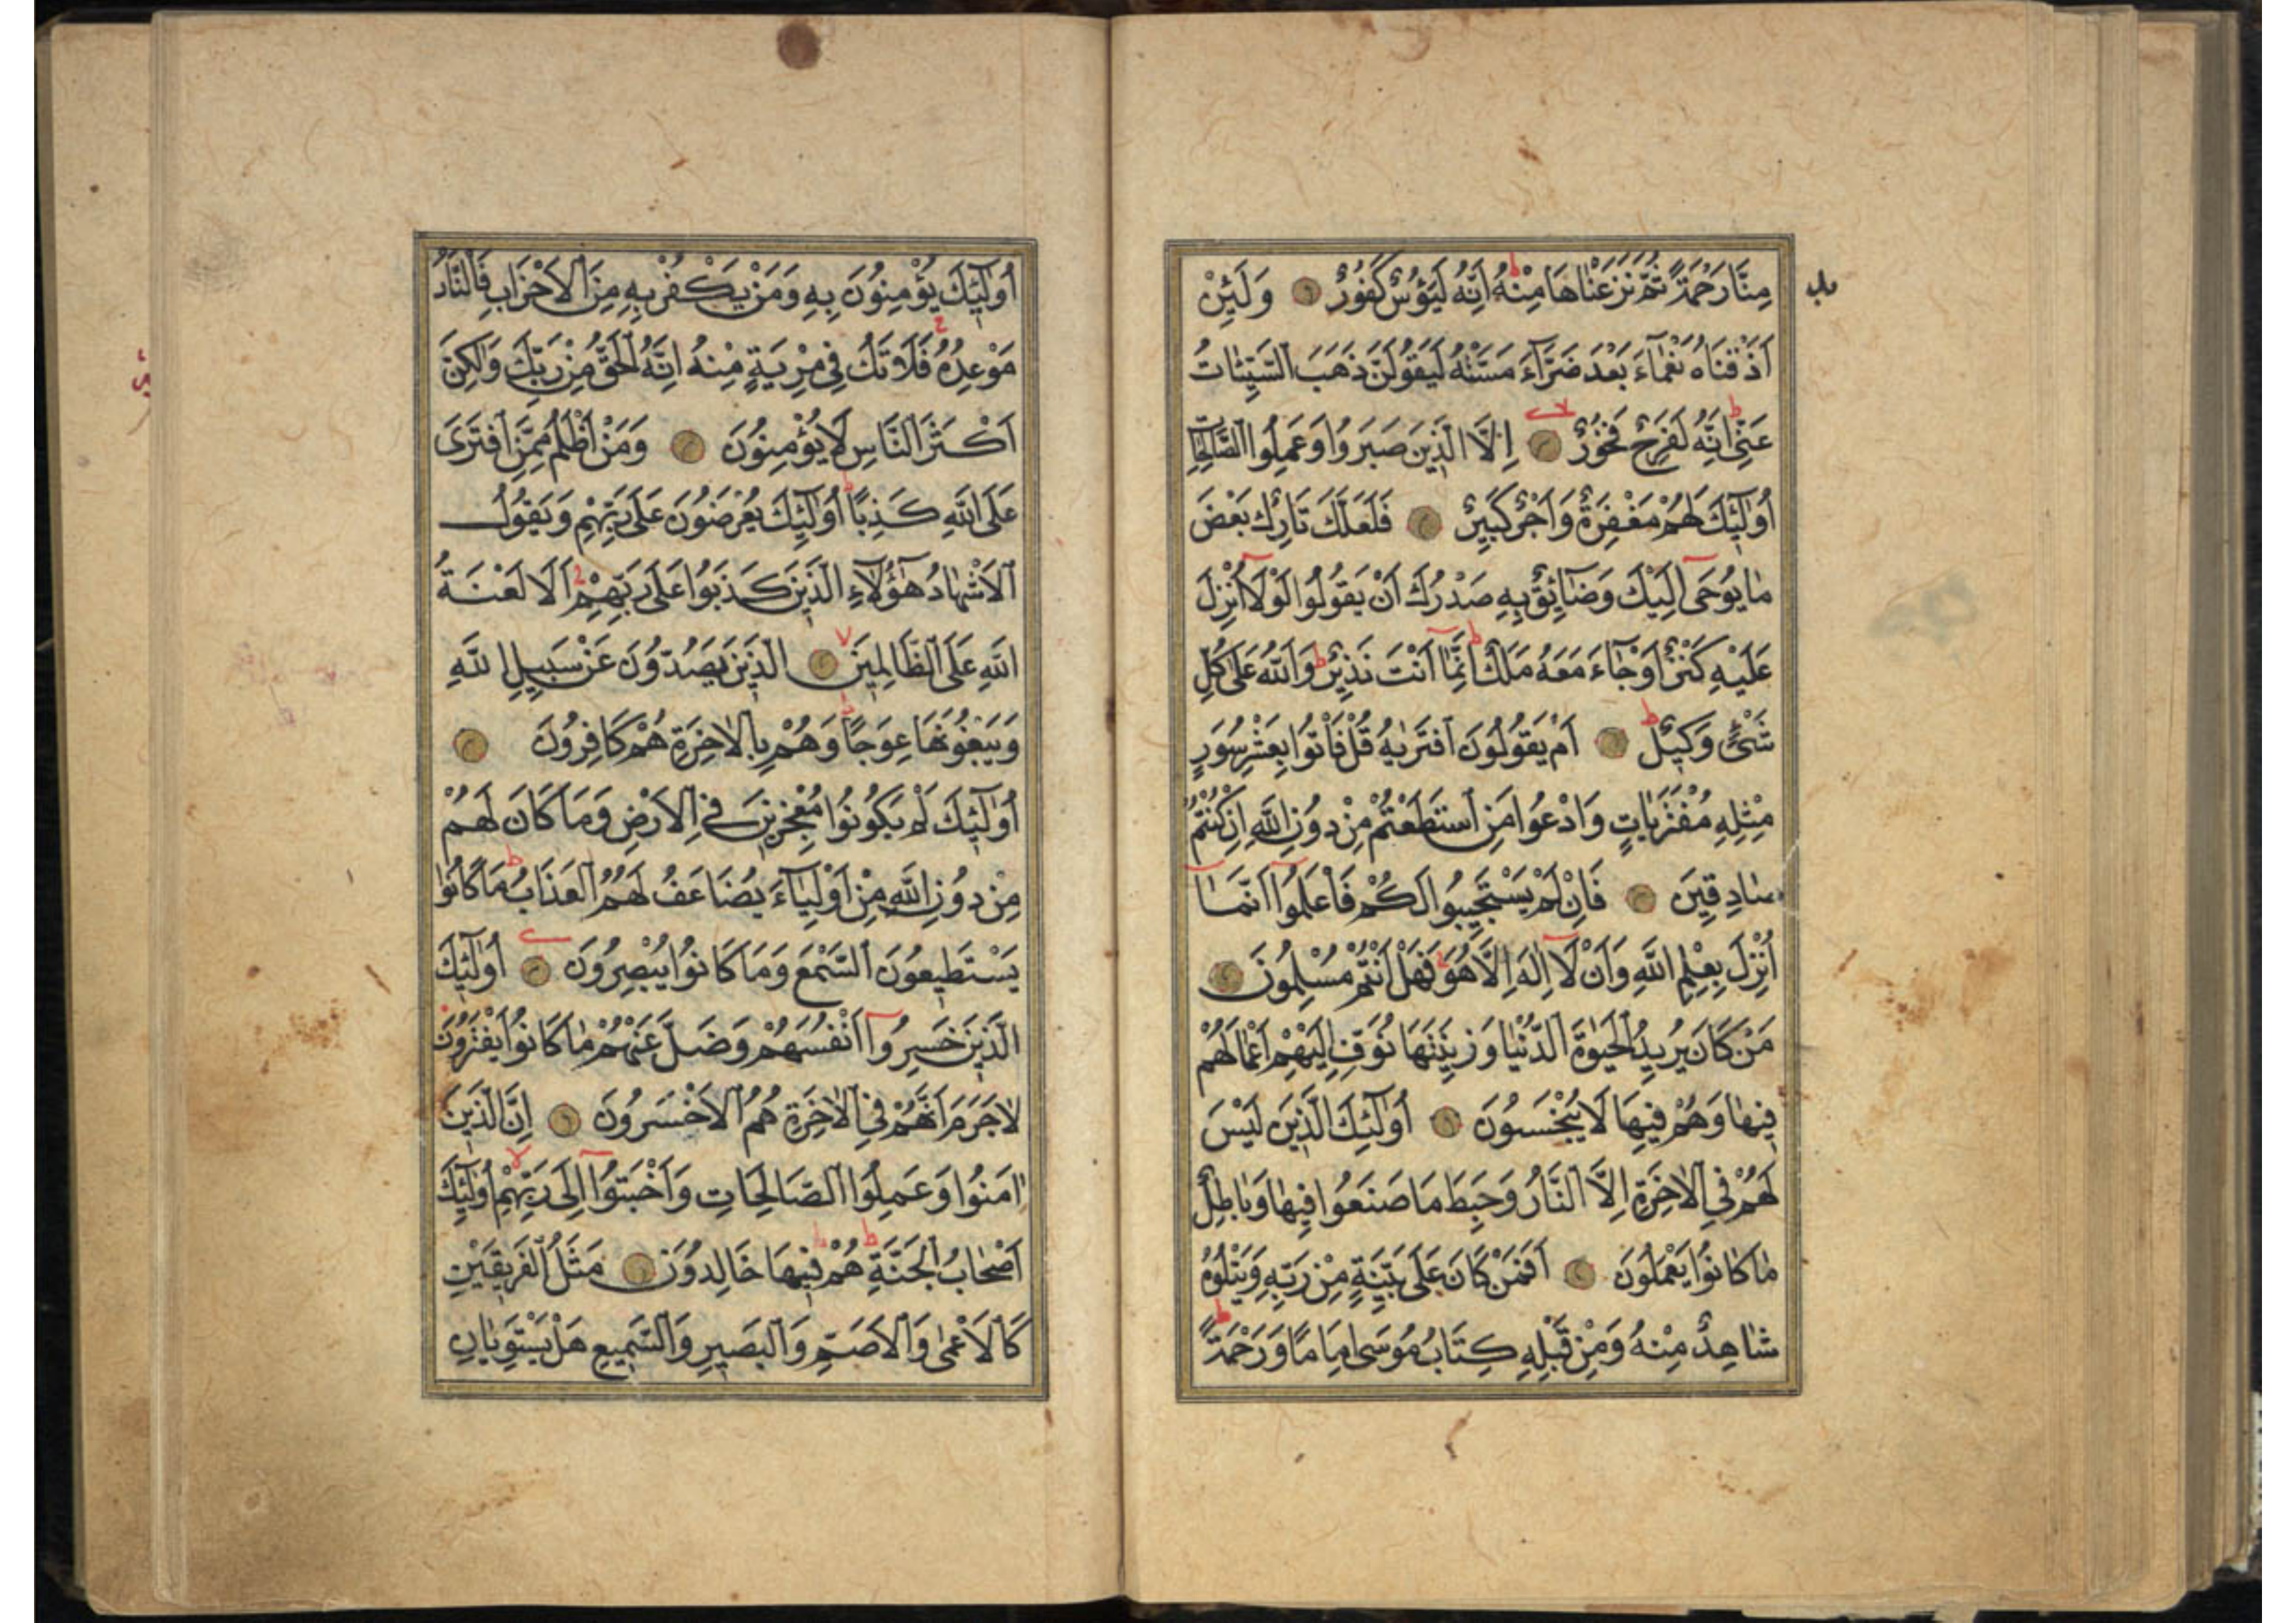 مِنَّا رَحْمَةً ثُمَّ نَزَعْنَاهَا مِنْهُ اِنَّهُ لَيَؤُسٌ كَفُورٌ وَلَئِنْ
اَذَقْنَاهُ نَعْمَاءَ بَعْدَ ضَرَّاءَ مَسَّتْهُ لَيَقُولَنَّ ذَهَبَ السَّيِّئَاتُ
عَنّ۪ى اِنَّهُ لَفَرِحٌ فَخُورٌ اِلَّا الَّذِينَ صَبَرُوا وَعَمِلُوا الصَّالِحَاتِ
اُولٰئِكَ لَهُمْ مَغْفِرَةٌ وَاَجْرٌ كَبِيرٌ فَلَعَلَّكَ تَارِكٌ بَعْضَ
مَا يُوحَى اِلَيْكَ وَضَائِقٌ بِهِ صَدْرُكَ اَنْ يَقُولُوا لَوْلَا اُنْزِلَ
عَلَيْهِ كَنْزٌ اَوْ جَاءَ مَعَهُ مَلَكٌ اِنَّمَا اَنْتَ نَذِيرٌ وَاللّٰهُ عَلَى كُلِّ
شَىْءٍ وَكِيلٌ اَمْ يَقُولُونَ افْتَرٰيهُ قُلْ فَاْتُوا بِعَشْرِ سُوَرٍ
مِثْلِهِ مُفْتَرَيَاتٍ وَادْعُوا مَنِ اسْتَطَعْتُمْ مِنْ دُونِ اللّٰهِ اِنْ كُنْتُمْ
صَادِقِينَ فَاِنْ لَمْ يَسْتَجِيبُوا لَكُمْ فَاعْلَمُوا اَنَّمَا
اُنْزِلَ بِعِلْمِ اللّٰهِ وَاَنْ لَا اِلٰهَ اِلَّا هُوَ فَهَلْ اَنْتُمْ مُسْلِمُونَ
مَنْ كَانَ يُرِيدُ الْحَيٰوةَ الدُّنْيَا وَزِينَتَهَا نُوَفِّ اِلَيْهِمْ اَعْمَالَهُمْ
فِيهَا وَهُمْ فِيهَا لَا يُبْخَسُونَ اُولٰئِكَ الَّذِينَ لَيْسَ
لَهُمْ فِى الْاٰخِرَةِ اِلَّا النَّارُ وَحَبِطَ مَا صَنَعُوا فِيهَا وَبَاطِلٌ
مَا كَانُوا يَعْمَلُونَ اَفَمَنْ كَانَ عَلَى بَيِّنَةٍ مِنْ رَبِّهِ وَيَتْلُوهُ
شَاهِدٌ مِنْهُ وَمِنْ قَبْلِهِ كِتَابُ مُوسَى اِمَامًا وَرَحْمَةً
اُولٰئِكَ يُؤْمِنُونَ بِهِ وَمَنْ يَكْفُرْ بِهِ مِنَ الْاَحْزَابِ فَالنَّارُ
مَوْعِدُهُ فَلَا تَكُ فِى مِرْيَةٍ مِنْهُ اِنَّهُ الْحَقُّ مِنْ رَبِّكَ وَلٰكِنَّ
اَكْثَرَ النَّاسِ لَا يُؤْمِنُونَ وَمَنْ اَظْلَمُ مِمَّنِ افْتَرَى
عَلَى اللّٰهِ كَذِبًا اُولٰئِكَ يُعْرَضُونَ عَلَى رَبِّهِمْ وَيَقُولُ
الْاَشْهَادُ هٰؤُلَاءِ الَّذِينَ كَذَبُوا عَلَى رَبِّهِمْ اَلَا لَعْنَةُ
اللّٰهِ عَلَى الظَّالِمِينَ الَّذِينَ يَصُدُّونَ عَنْ سَبِيلِ اللّٰهِ
وَيَبْغُونَهَا عِوَجًا وَهُمْ بِالْاٰخِرَةِ هُمْ كَافِرُونَ
اُولٰئِكَ لَمْ يَكُونُوا مُعْجِزِينَ فِى الْاَرْضِ وَمَا كَانَ لَهُمْ
مِنْ دُونِ اللّٰهِ مِنْ اَوْلِيَاءَ يُضَاعَفُ لَهُمُ الْعَذَابُ مَا كَانُوا
يَسْتَطِيعُونَ السَّمْعَ وَمَا كَانُوا يُبْصِرُونَ اُولٰئِكَ
الَّذِينَ خَسِرُوا اَنْفُسَهُمْ وَضَلَّ عَنْهُمْ مَا كَانُوا يَفْتَرُونَ
لَا جَرَمَ اَنَّهُمْ فِى الْاٰخِرَةِ هُمُ الْاَخْسَرُونَ اِنَّ الَّذِينَ
اٰمَنُوا وَعَمِلُوا الصَّالِحَاتِ وَاَخْبَتُوا اِلَى رَبِّهِمْ اُولٰئِكَ
اَصْحَابُ الْجَنَّةِ هُمْ فِيهَا خَالِدُونَ مَثَلُ الْفَرِيقَيْنِ
كَالْاَعْمَى وَالْاَصَمِّ وَالْبَصِيرِ وَالسَّمِيعِ هَلْ يَسْتَوِيَانِ